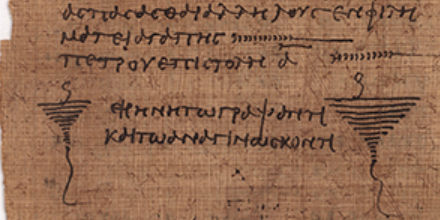 ασπασασθαι αλληλους εν φιλη
ματει αγαπης
πετρου επιστολη α
ειρηνη τω γραψαντι
και τω αναγινωσκοντι